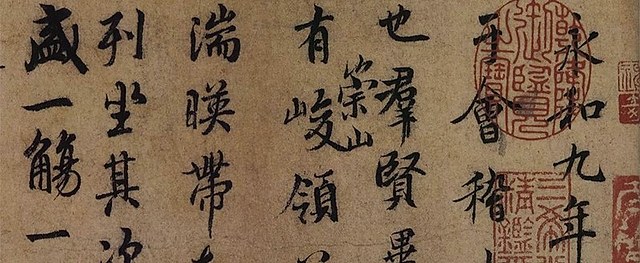 永和九年
于會稽
也羣賢畢
有崇山峻領
湍暎帶
列坐其次
盛一觴一
三希
精鑑